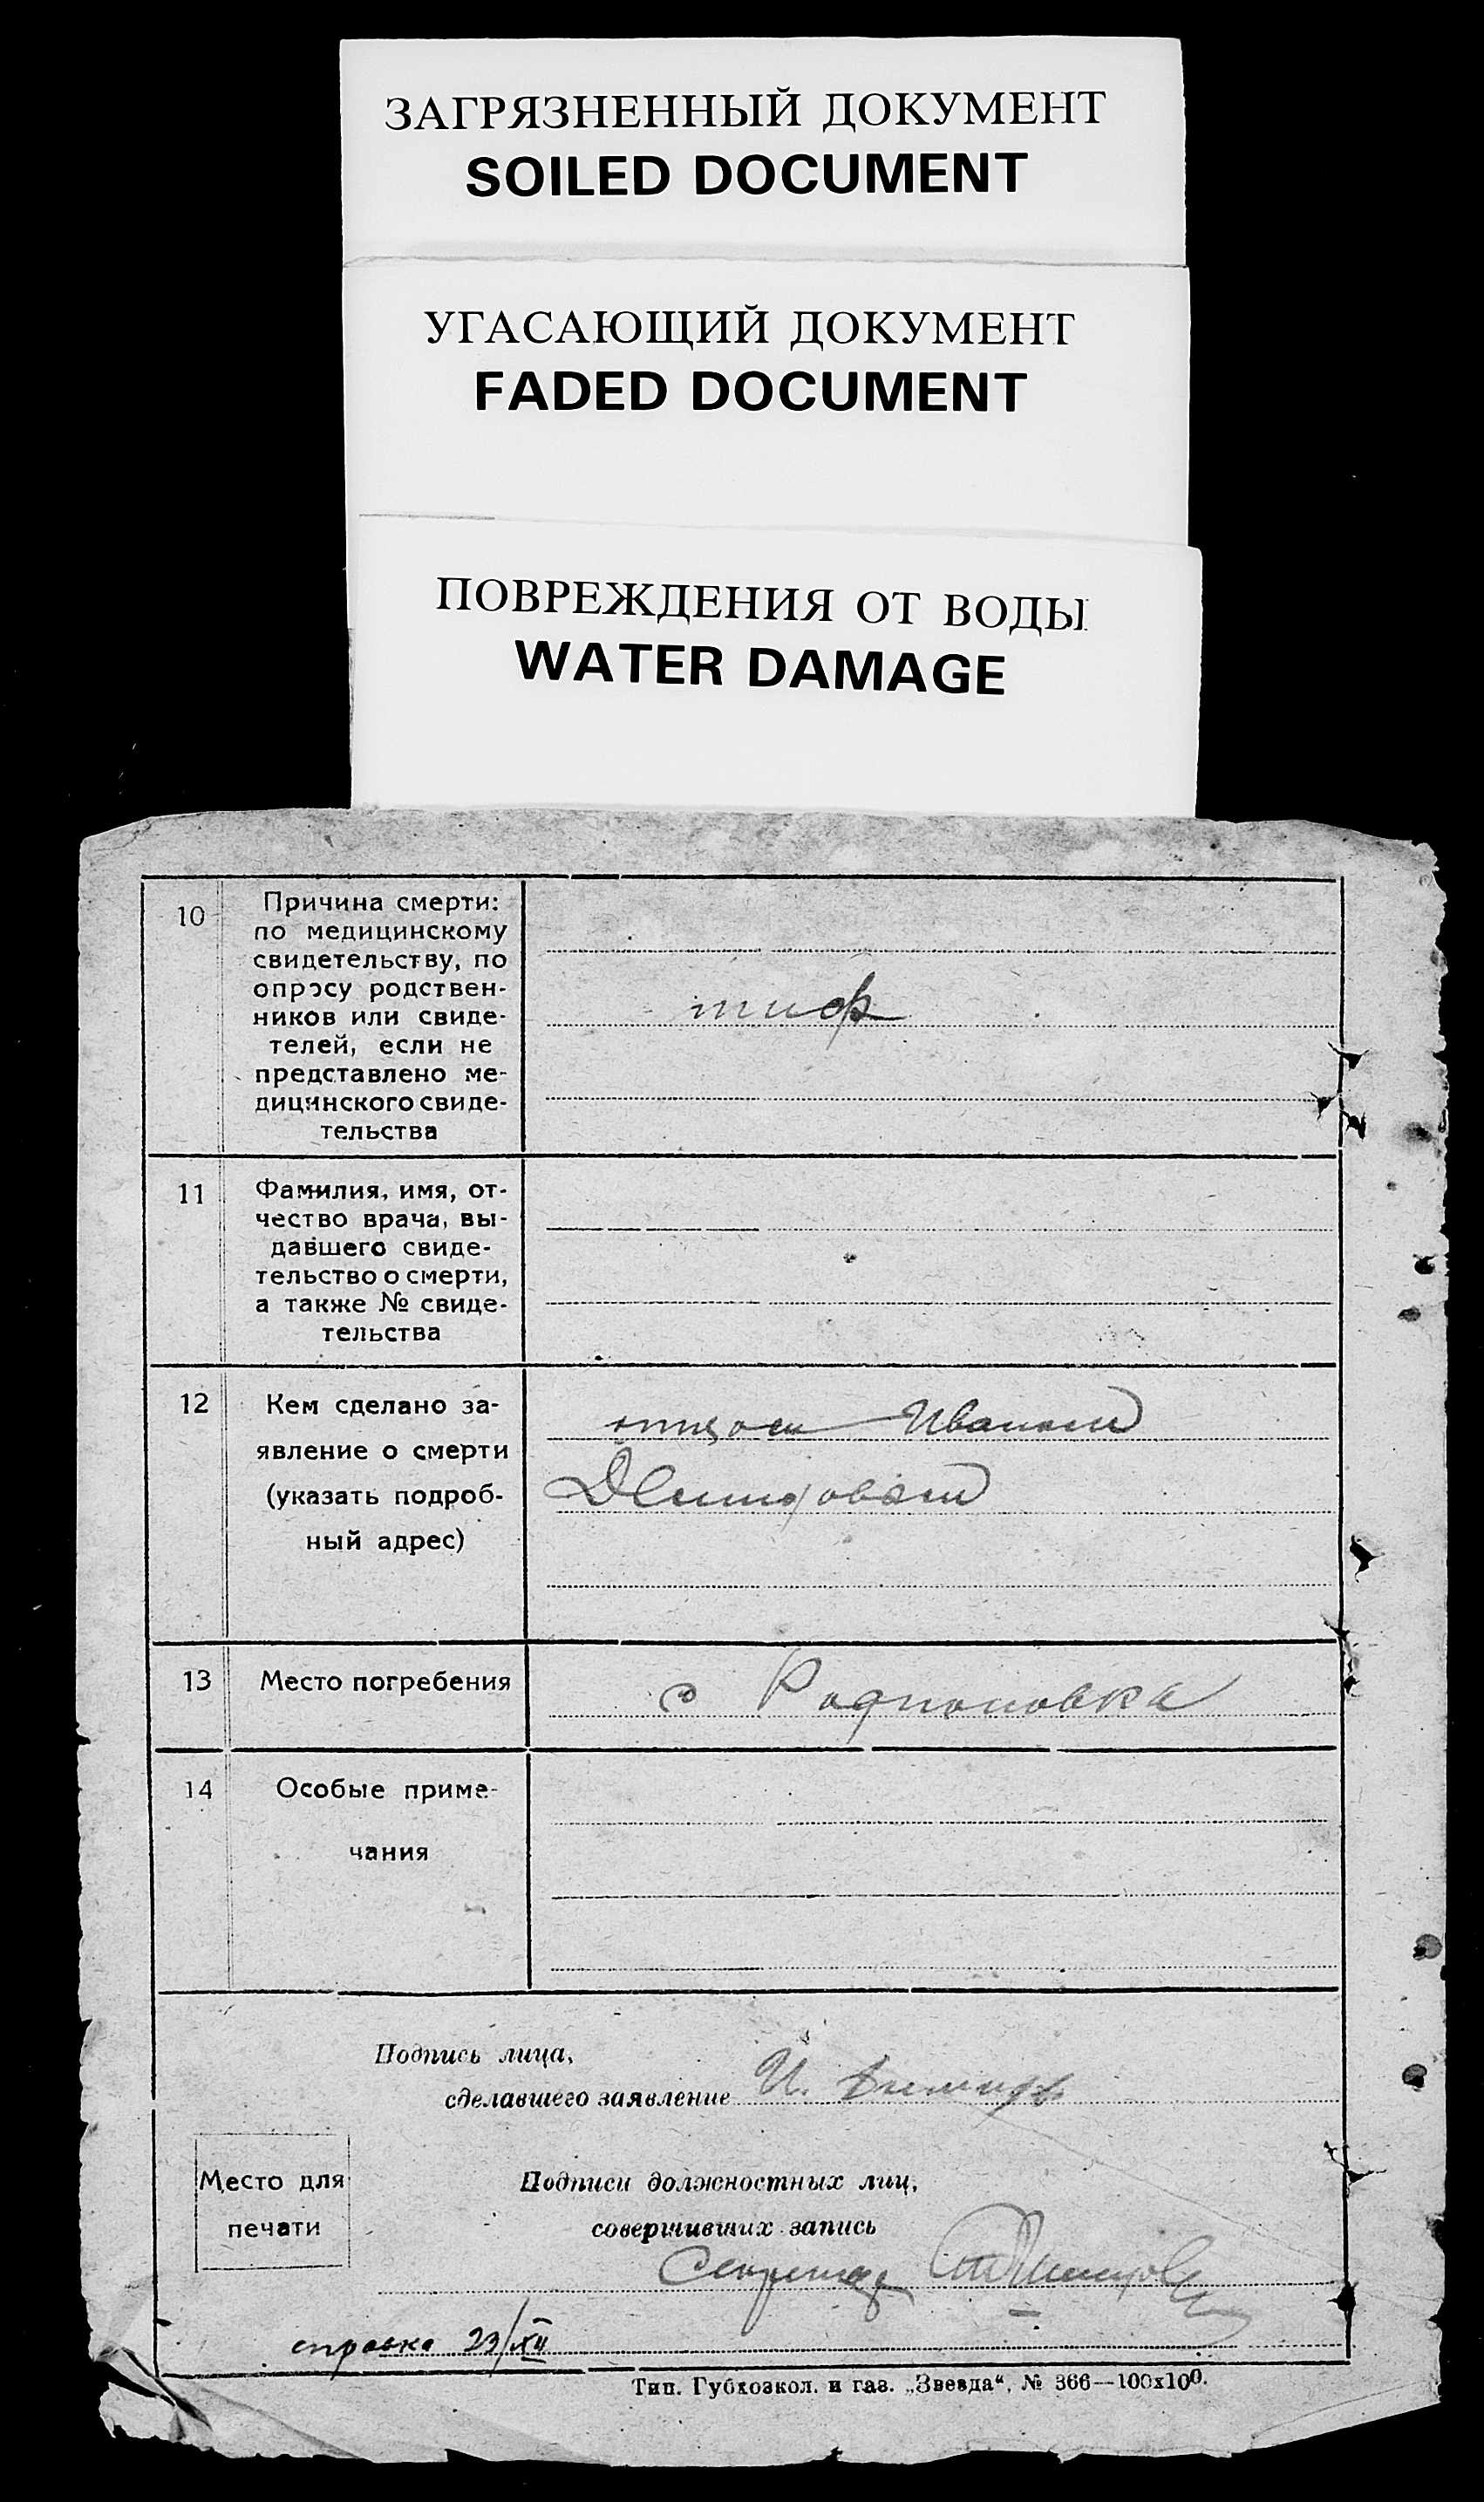 ЗАГРЯЗНЕННЫЙ ДОКУМЕНТ
SOILED DOCUMENT
УГАСАЮЩИЙ ДОКУМЕНТ
FADED DOCUMENT
ПОВРЕЖДЕНИЯ ОТ ВОДЫ
WATER DAMAGE
10
Причина смерти:
по медицинскому
свидетельству, по
опросу родствен-
ников или свиде-
телей, если не
представлено ме-
дицинского свиде-
тельства
тиф
11
Фамилия, имя, от-
чество врача, вы-
давшего свиде-
тельство о смерти,
а также № свиде-
тельства
12
Кем сделано за-
явление о смерти
(указать подроб-
ный адрес)
отцом Иваном
Демидовым
13
Место погребения
с Родионовка
14
Особые приме-
чания
Подпись лица,
сделавшего заявление И. Демидов
Место для
печати
Подписи должностных лиц,
совершивших запись
Секретарь
справка 23/XII
Тип. Губхозкол. и газ. „Звезда“, № 366—100x100.